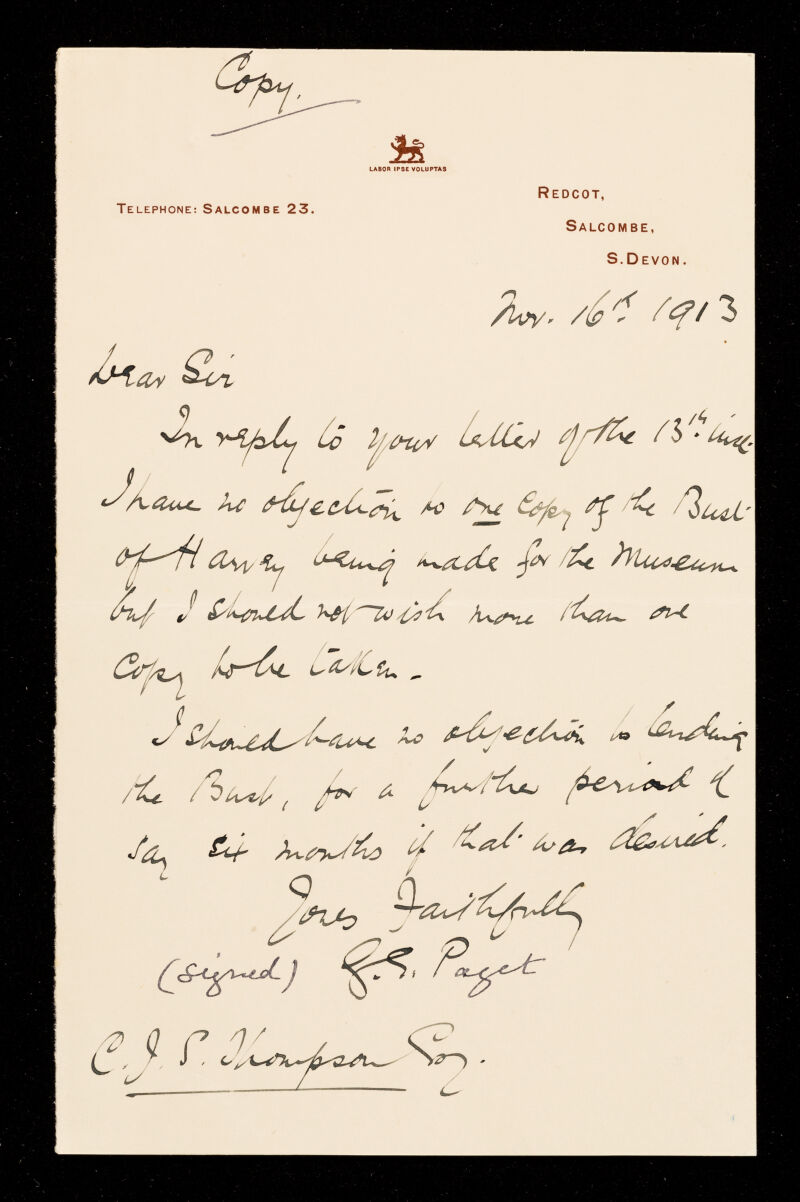 Copy.
LABOR IPSE VOLUPTAS
TELEPHONE: SALCOMBE 23.
REDCOT,
SALCOMBE,
S. DEVON.
Nov. 16th. 1913
Dear Sir
In reply to your letter of the 13th. inst.
I have no objection to one copy of the Bust
of Harvey being made for the Museum
but I should not wish more than one
copy to be taken -
I should have no objection to lending
the Bust, for a further period of
say six months if that was desired.
Yours Faithfully
(signed) G. E. Paget
C. J. S. Thompson Esq.